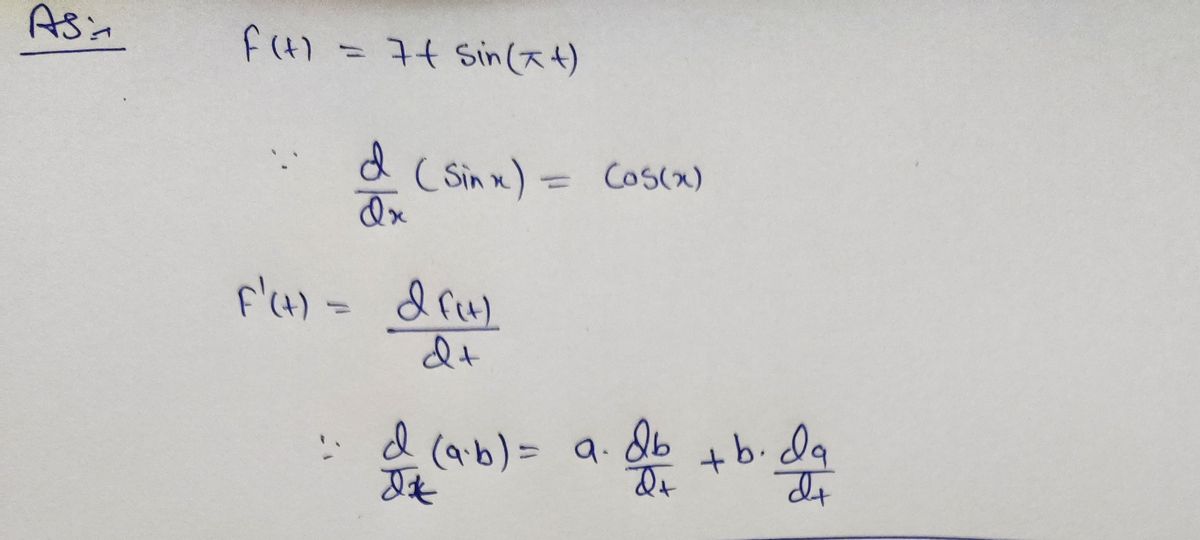 AS:→
f(t) = 7t sin(πt)
∵ d/dx (sin x) = cos(x)
F'(t) = d f(t)/dt
∵ d/dt (a·b) = a. db/dt + b. da/dt